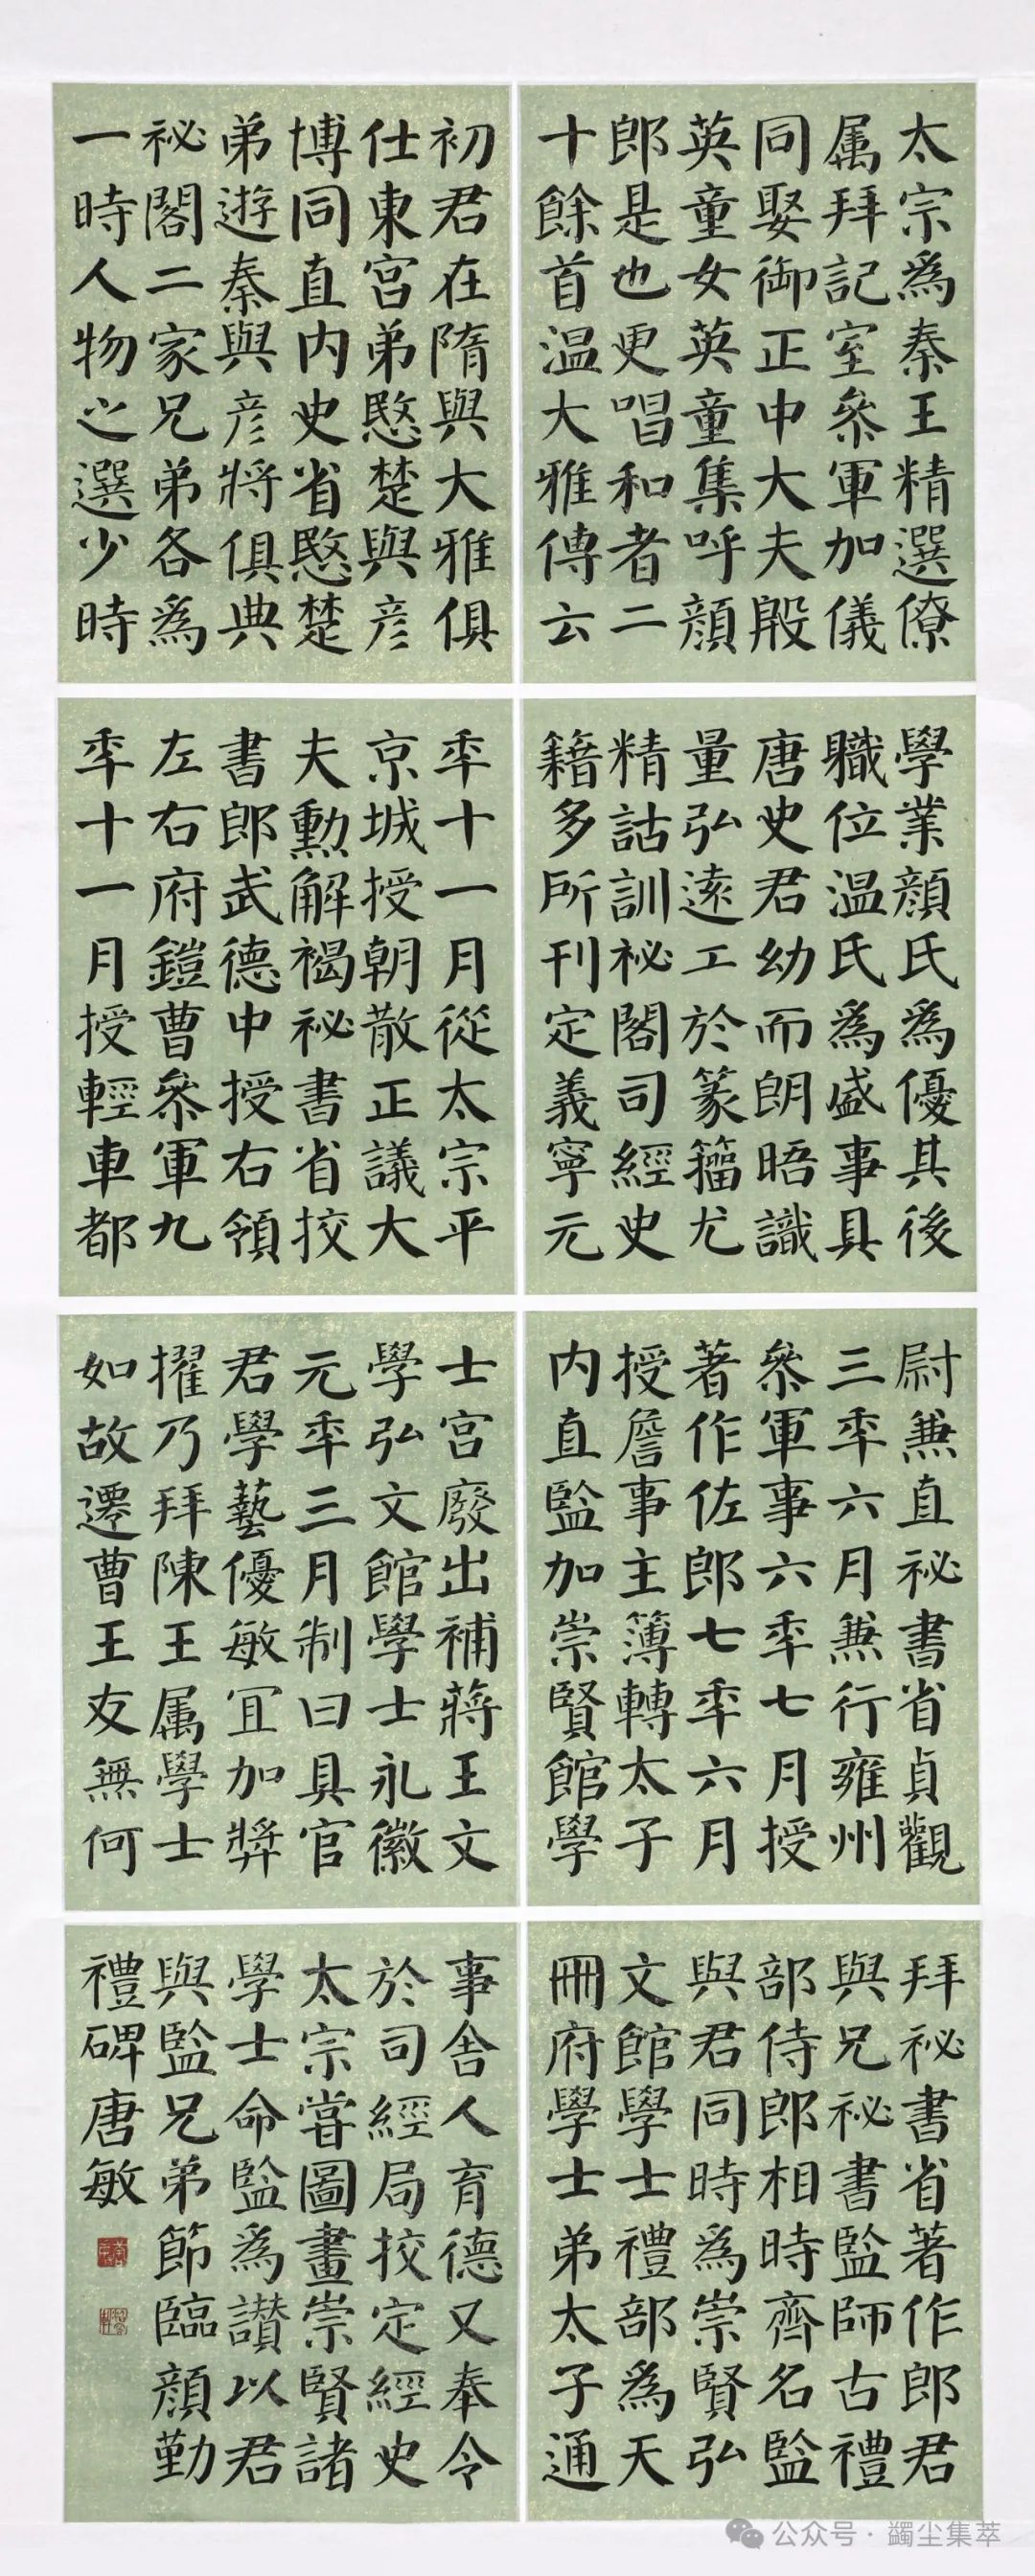 太宗為秦王精選僚
属拜記室叅軍加儀
同娶御正中大夫殷
英童女英童集呼顔
郎是也更唱和者二
十餘首温大雅傳云
初君在隋與大雅俱
仕東宮弟愍楚與彦
博同直内史省愍楚
弟遊秦與彦將俱典
祕閣二家兄弟各為
一時人物之選少時
學業顔氏為優其後
職位温氏為盛事具
唐史君幼而朗晤識
量弘遠工於篆籀尤
精詁訓祕閣司經史
籍多所刊定義寧元
秊十一月從太宗平
京城授朝散正議大
夫勳解褐祕書省挍
書郎武德中授右領
左右府鎧曹叅軍九
秊十一月授輕車都
尉兼直祕書省貞觀
三秊六月兼行雍州
叅軍事六秊七月授
著作佐郎七秊六月
授詹事主簿轉太子
内直監加崇賢館學
士宮廢出補蔣王文
學弘文館學士永徽
元秊三月制曰具官
君學藝優敏宜加奬
擢乃拜陳王属學士
如故遷曹王友無何
拜祕書省著作郎君
與兄祕書監師古禮
部侍郎相時齊名監
與君同時為崇賢弘
文館學士禮部為天
冊府學士弟太子通
事舎人育德又奉令
於司經局挍定經史
太宗甞圖畫崇賢諸
學士命監為讃以君
與監兄弟節臨顔勤
禮碑唐敏
公众号·蠲尘集萃